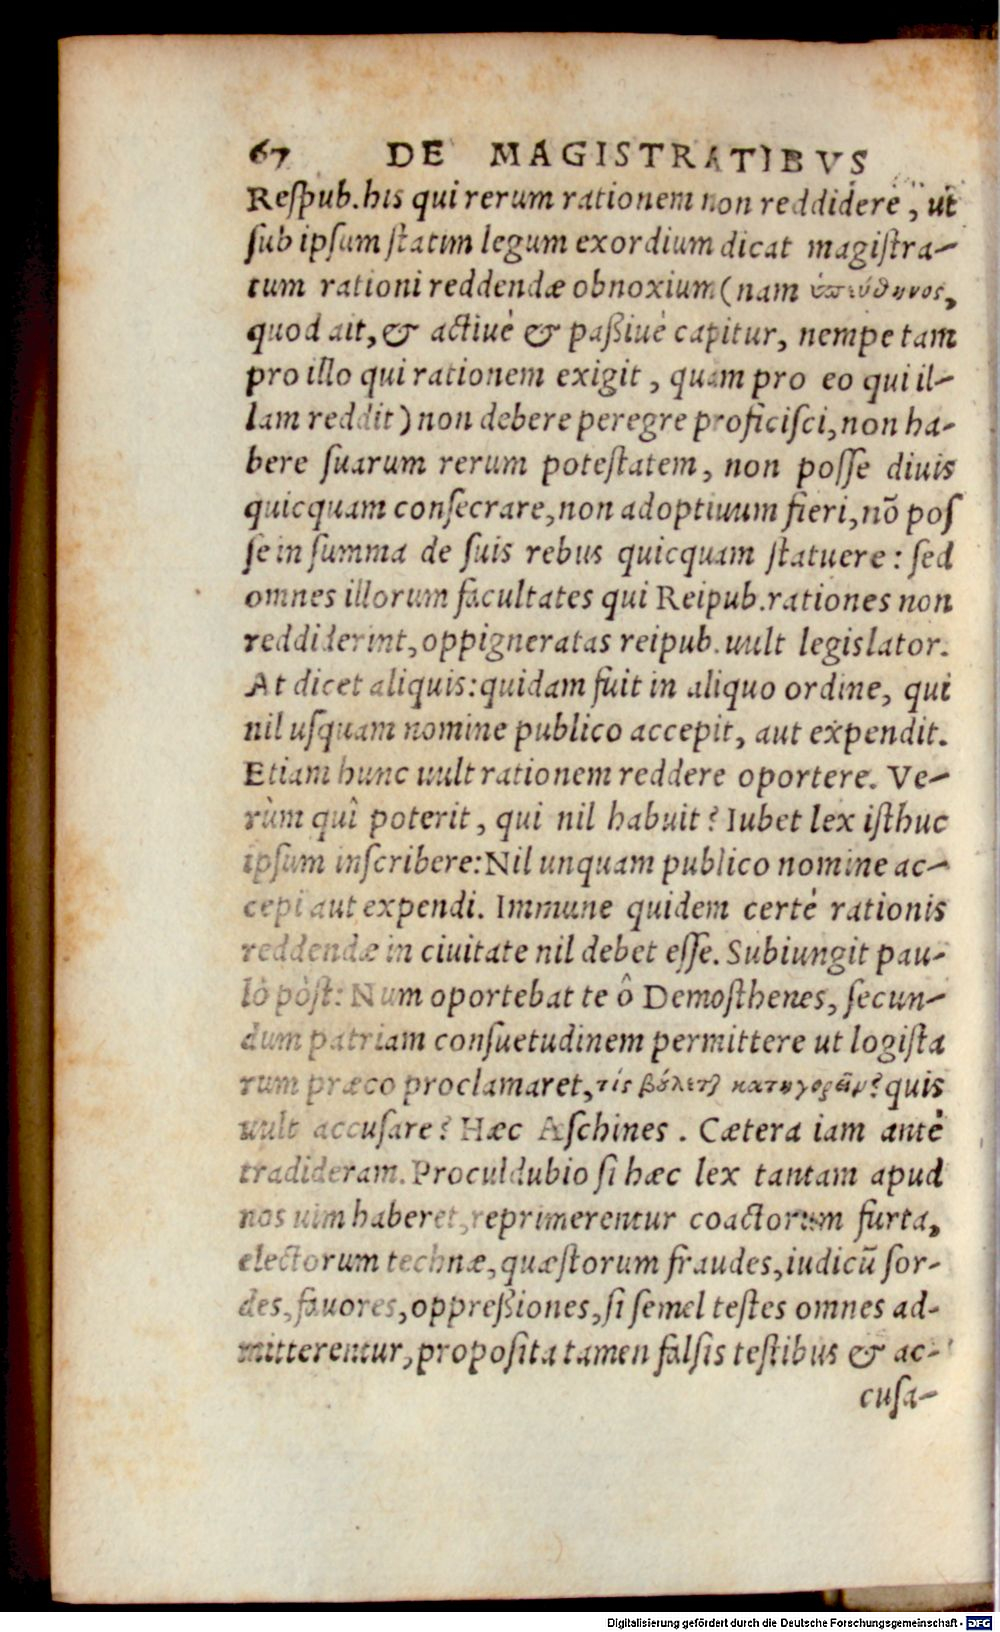 67 DE MAGISTRATIBVS
Reſpub. his qui rerum rationem non reddiderẻ, ut
ſub ipſum ſtatim legum exordium dicat magiſtra-
tum rationi reddendæ obnoxium (nam ὑπεύθηνος,
quod ait, & actiuè & paßiuè capitur, nempe tam
pro illo qui rationem exigit, quam pro eo qui il-
lam reddit) non debere peregre proficiſci, non ha-
bere ſuarum rerum poteſtatem, non poſſe diuis
quicquam conſecrare, non adoptiuum fieri, nō poſ
ſe in ſumma de ſuis rebus quicquam ſtatuere: ſed
omnes illorum facultates qui Reipub. rationes non
reddiderint, oppigneratas reipub. uult legislator.
At dicet aliquis: quidam fuit in aliquo ordine, qui
nil uſquam nomine publico accepit, aut expendit.
Etiam hunc uult rationem reddere oportere. Ve-
rùm quî poterit, qui nil habuit? Iubet lex iſthuc
ipſum inſcribere: Nil unquam publico nomine ac-
cepi aut expendi. Immune quidem certè rationis
reddendæ in ciuitate nil debet eſſe. Subiungit pau-
lò pòſt: Num oportebat te ô Demoſthenes, ſecun-
dum patriam conſuetudinem permittere ut logiſta
rum præco proclamaret, τίς βύλετ κατηγορῆν? quis
uult accuſare? Hæc Æſchines. Cætera iam antè
tradideram. Proculdubio ſi hæc lex tantam apud
nos uim haberet, reprimerentur coactorum furta,
electorum technæ, quæſtorum fraudes, iudicũ ſor-
des, fauores, oppreßiones, ſi ſemel teſtes omnes ad-
mitterentur, propoſita tamen falſis teſtibus & ac-
cuſa-
Digitalisierung gefördert durch die Deutsche Forschungsgemeinschaft - DFG